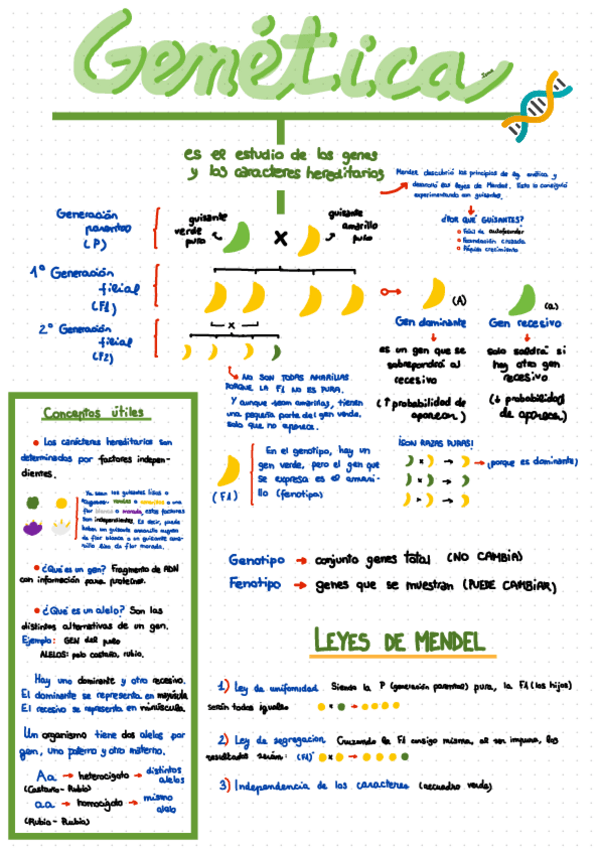 Genética
es el estudio de los genes
y los caracteres hereditarios
Mendel descubrió los principios de la genética y
desarrolló las leyes de Mendel. Esto lo consiguió
experimentando con guisantes.
¿POR QUÉ GUISANTES?
Fáciles de autofecundar
Fecundación cruzada
Rápido crecimiento
Generación
parental
(P)
guisante
verde
puro
X
guisante
amarillo
puro
1º Generación
filial
(F1)
2º Generación
filial
(F2)
x
(A)
Gen dominante
es un gen que se
sobrepondrá al
recesivo
(↑ probabilidad de
aparecer)
(a)
Gen recesivo
solo saldrá si
hay otro gen
recesivo
(↓ probabilidad
de aparecer)
NO SON TODAS AMARILLAS
PORQUE LA F1 NO ES PURA.
Y aunque sean amarillas, tienen
una pequeña parte del gen verde.
solo que no aparece.
(F1)
En el genotipo, hay un
gen verde, pero el gen que
se expresa es el amari-
llo (fenotipo)
¡SON RAZAS PURAS!
x →
(porque es dominante)
x →
x →
Genotipo → conjunto genes total (NO CAMBIA)
Fenotipo → genes que se muestran (PUEDE CAMBIAR)
LEYES DE MENDEL
1) Ley de uniformidad Siendo la P (generación parental) pura, la F1 (los hijos)
serán todos iguales x →
2) Ley de segregación Cruzando la F1 consigo misma, al ser impura, los
resultados serán: (F1) x →
3) Independencia de los caracteres (recuadro verde)
Conceptos útiles
Los carácteres hereditarios son
determinados por factores indepen-
dientes.
Ya sean los guisantes lisos o
rugosos, verdes o amarillos o una
flor blanca o morada, estos factores
son independientes. Es decir, puede
haber un guisante amarillo rugoso
de flor blanca o un guisante ama-
rillo liso de flor morada.
¿Qué es un gen? Fragmento de ADN
con información para proteínas.
¿Qué es un alelo? Son las
distintas alternativas de un gen.
Ejemplo: GEN del pelo
ALELOS: pelo castaño, rubio.
Hay uno dominante y otro recesivo.
El dominante se representa en mayúscula
El recesivo se representa en minúscula.
Un organismo tiene dos alelos por
gen, uno paterno y otro materno.
Aa → heterocigoto → distintos
alelos
(Castaño-Rubio)
aa → homocigoto → mismo
alelo
(Rubio-Rubio)